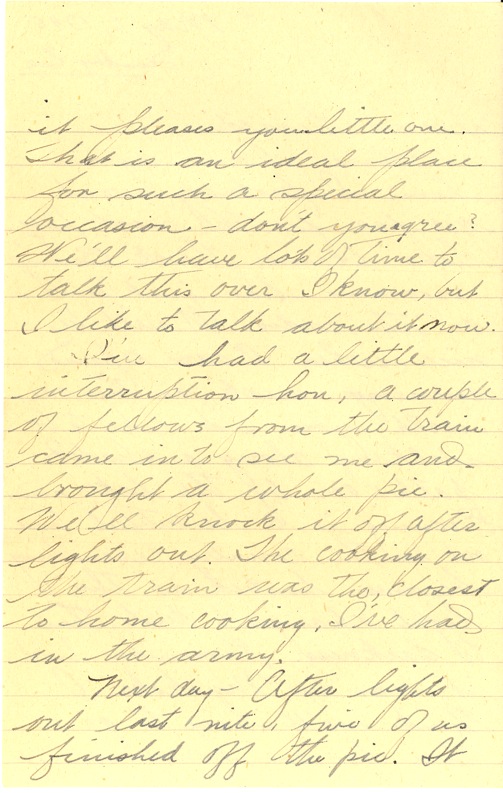 it pleases you little one.
That is an ideal place
for such a special
occasion - don't you agree?
We'll have lots of time to
talk this over I know, but
I like to talk about it now.
I've had a little
interruption hon, a couple
of fellows from the train
came in to see me and
brought a whole pie.
We'll knock it off after
lights out. The cooking on
the train was the closest
to home cooking, I've had
in the army.
Next day - After lights
out last nite, five of us
finished off the pie. It